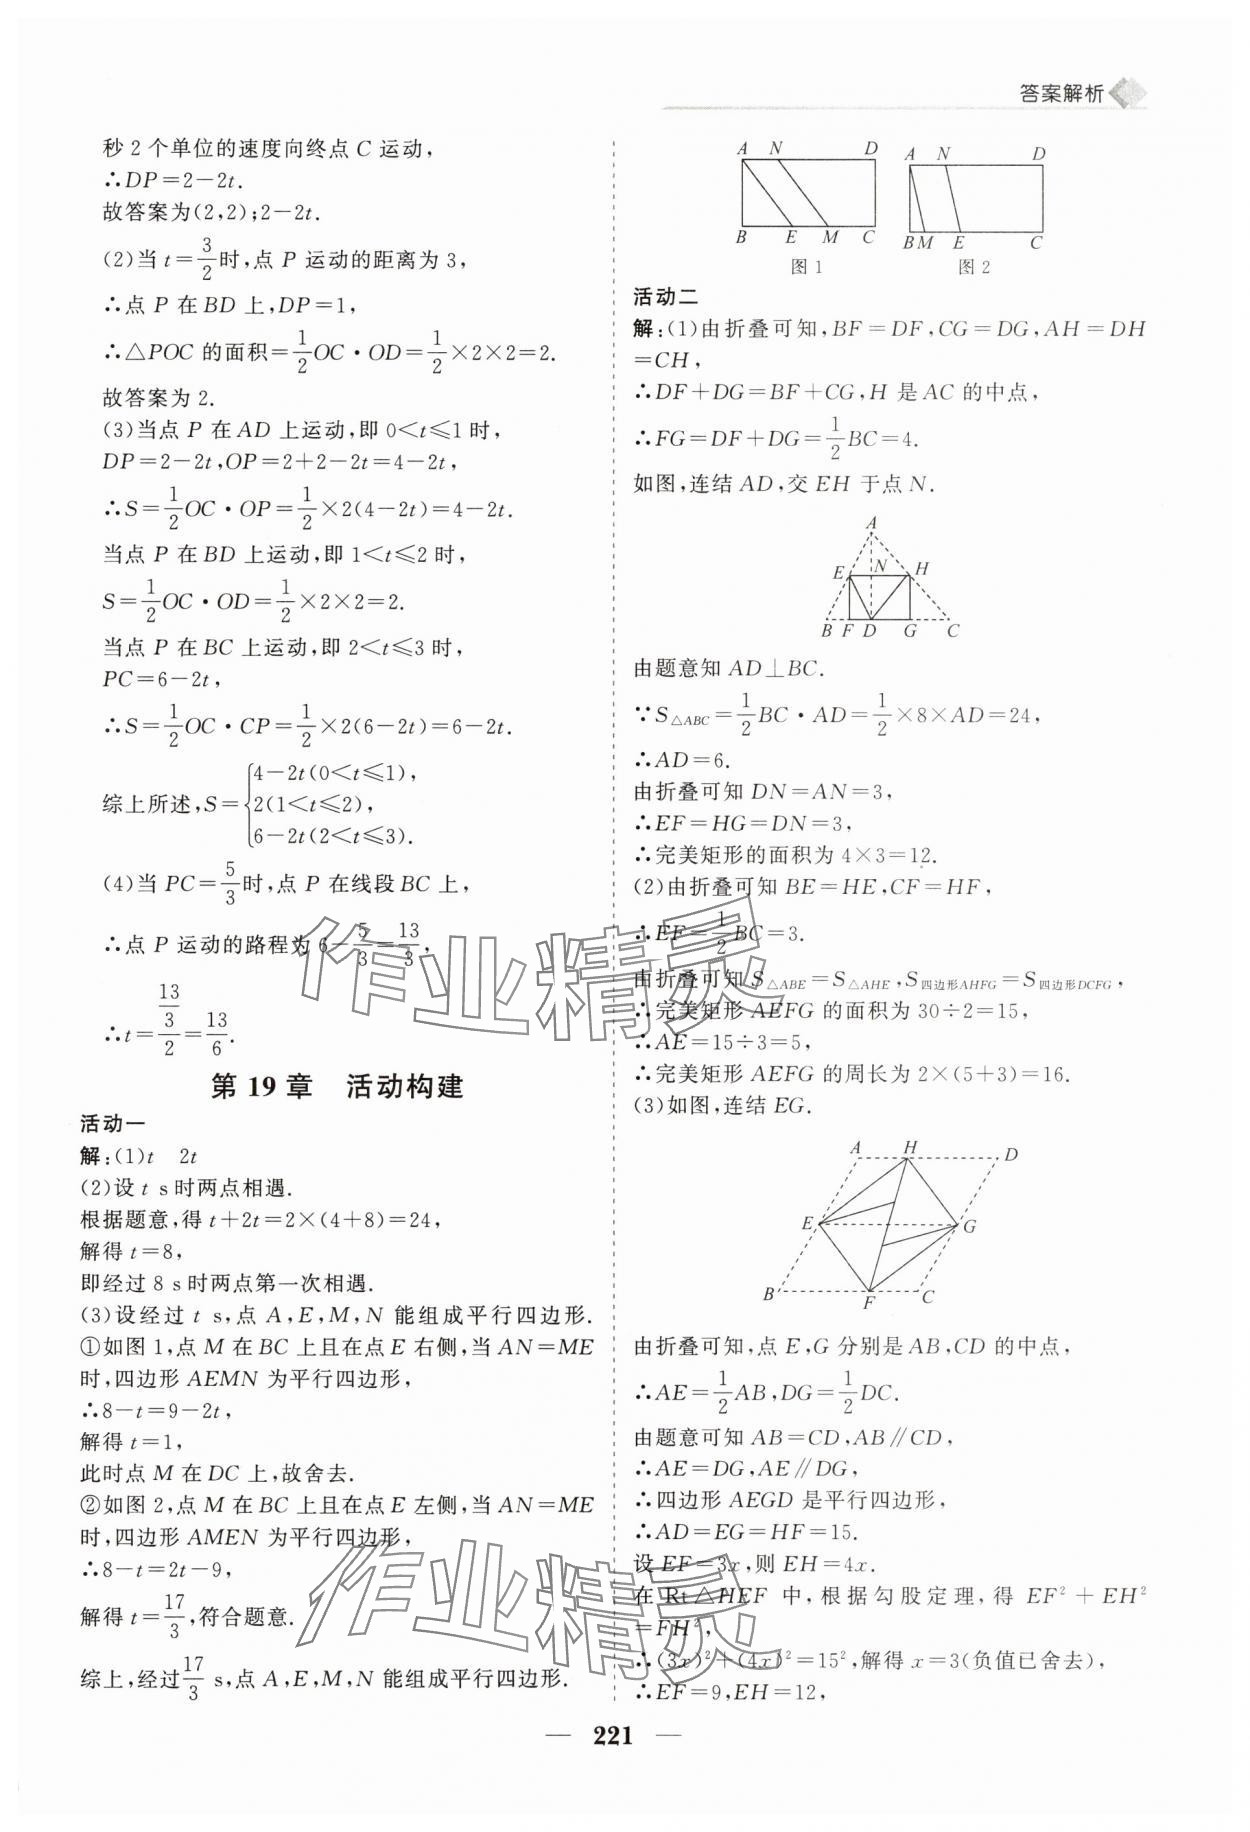 答案解析
秒 2 个单位的速度向终点 C 运动，
∴DP=2-2t.
故答案为(2,2);2-2t.
(2)当 t=3/2时,点 P 运动的距离为 3,
∴点 P 在 BD 上,DP=1,
∴△POC 的面积=1/2OC·OD=1/2×2×2=2.
故答案为 2.
(3)当点 P 在 AD 上运动,即 0<t≤1 时,
DP=2-2t,OP=2+2-2t=4-2t,
∴S=1/2OC·OP=1/2×2(4-2t)=4-2t.
当点 P 在 BD 上运动,即 1<t≤2 时,
S=1/2OC·OD=1/2×2×2=2.
当点 P 在 BC 上运动,即 2<t≤3 时,
PC=6-2t,
∴S=1/2OC·CP=1/2×2(6-2t)=6-2t.
4-2t(0<t≤1),
综上所述,S={2(1<t≤2),
6-2t(2<t≤3).
(4)当 PC=5/3时,点 P 在线段 BC 上,
∴点 P 运动的路程为 6-5/3=13/3,
∴t=13/3/2=13/6.
第 19 章 活动构建
活动一
解:(1)t 2t
(2)设 t s时两点相遇.
根据题意,得 t+2t=2×(4+8)=24,
解得 t=8,
即经过 8 s时两点第一次相遇.
(3)设经过 t s,点 A,E,M,N 能组成平行四边形.
①如图 1,点 M 在 BC 上且在点 E 右侧,当 AN=ME
时,四边形 AEMN 为平行四边形,
∴8-t=9-2t,
解得 t=1,
此时点 M 在 DC 上,故舍去.
②如图 2,点 M 在 BC 上且在点 E 左侧,当 AN=ME
时,四边形 AMEN 为平行四边形,
∴8-t=2t-9,
解得 t=17/3,符合题意.
综上,经过17/3 s,点 A,E,M,N 能组成平行四边形.
A N D
B E M C
图 1
A N D
B M E C
图 2
活动二
解:(1)由折叠可知,BF=DF,CG=DG,AH=DH
=CH,
∴DF+DG=BF+CG,H 是 AC 的中点,
∴FG=DF+DG=1/2BC=4.
如图,连结 AD,交 EH 于点 N.
A
E N H
B F D G C
由题意知 AD⊥BC.
∵S△ABC=1/2BC·AD=1/2×8×AD=24,
∴AD=6.
由折叠可知 DN=AN=3,
∴EF=HG=DN=3,
∴完美矩形的面积为 4×3=12.
(2)由折叠可知 BE=HE,CF=HF,
∴EF=1/2BC=3.
由折叠可知 S△ABE=S△AHE,S四边形AHFG=S四边形DCFG,
∴完美矩形 AEFG 的面积为 30÷2=15,
∴AE=15÷3=5,
∴完美矩形 AEFG 的周长为 2×(5+3)=16.
(3)如图,连结 EG.
A H D
E G
B F C
由折叠可知,点 E,G 分别是 AB,CD 的中点,
∴AE=1/2AB,DG=1/2DC.
由题意可知 AB=CD,AB∥CD,
∴AE=DG,AE∥DG,
∴四边形 AEGD 是平行四边形,
∴AD=EG=HF=15.
设 EF=3x,则 EH=4x.
在 Rt△HEF 中,根据勾股定理,得 EF²+EH²
=FH²,
∴(3x)²+(4x)²=15²,解得 x=3(负值已舍去),
∴EF=9,EH=12,
— 221 —
作业精灵
作业精灵